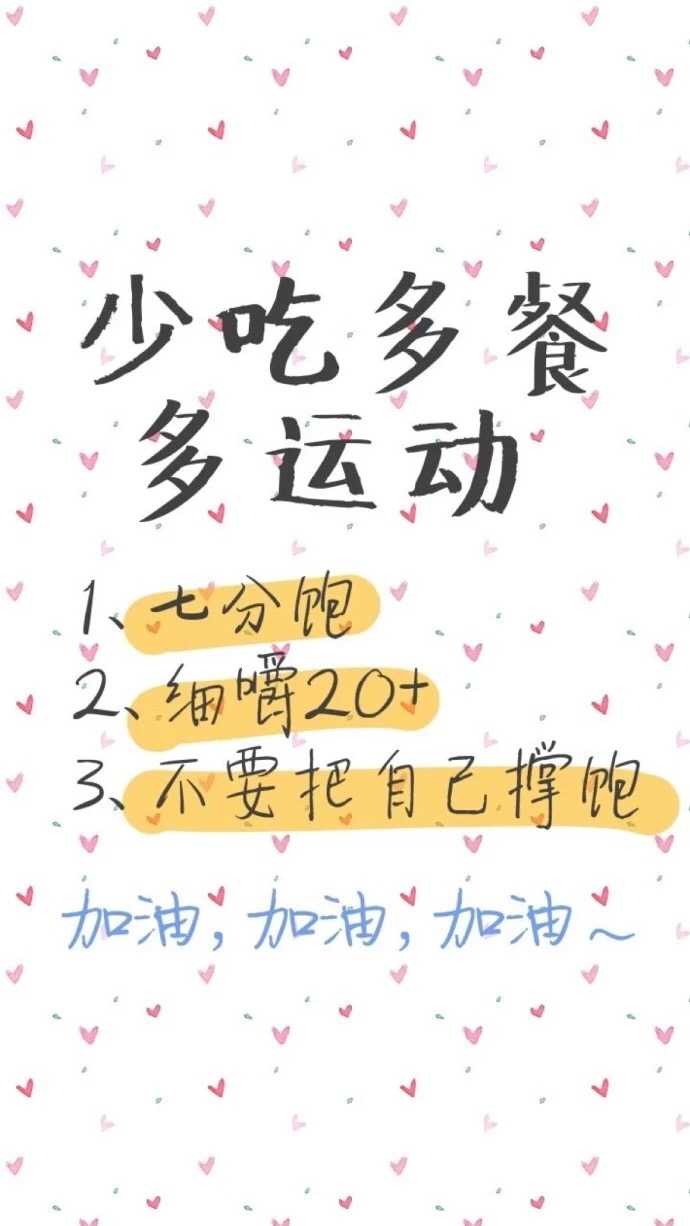 少吃多餐
多运动
1、七分饱
2、细嚼20+
3、不要把自己撑饱
加油,加油,加油~